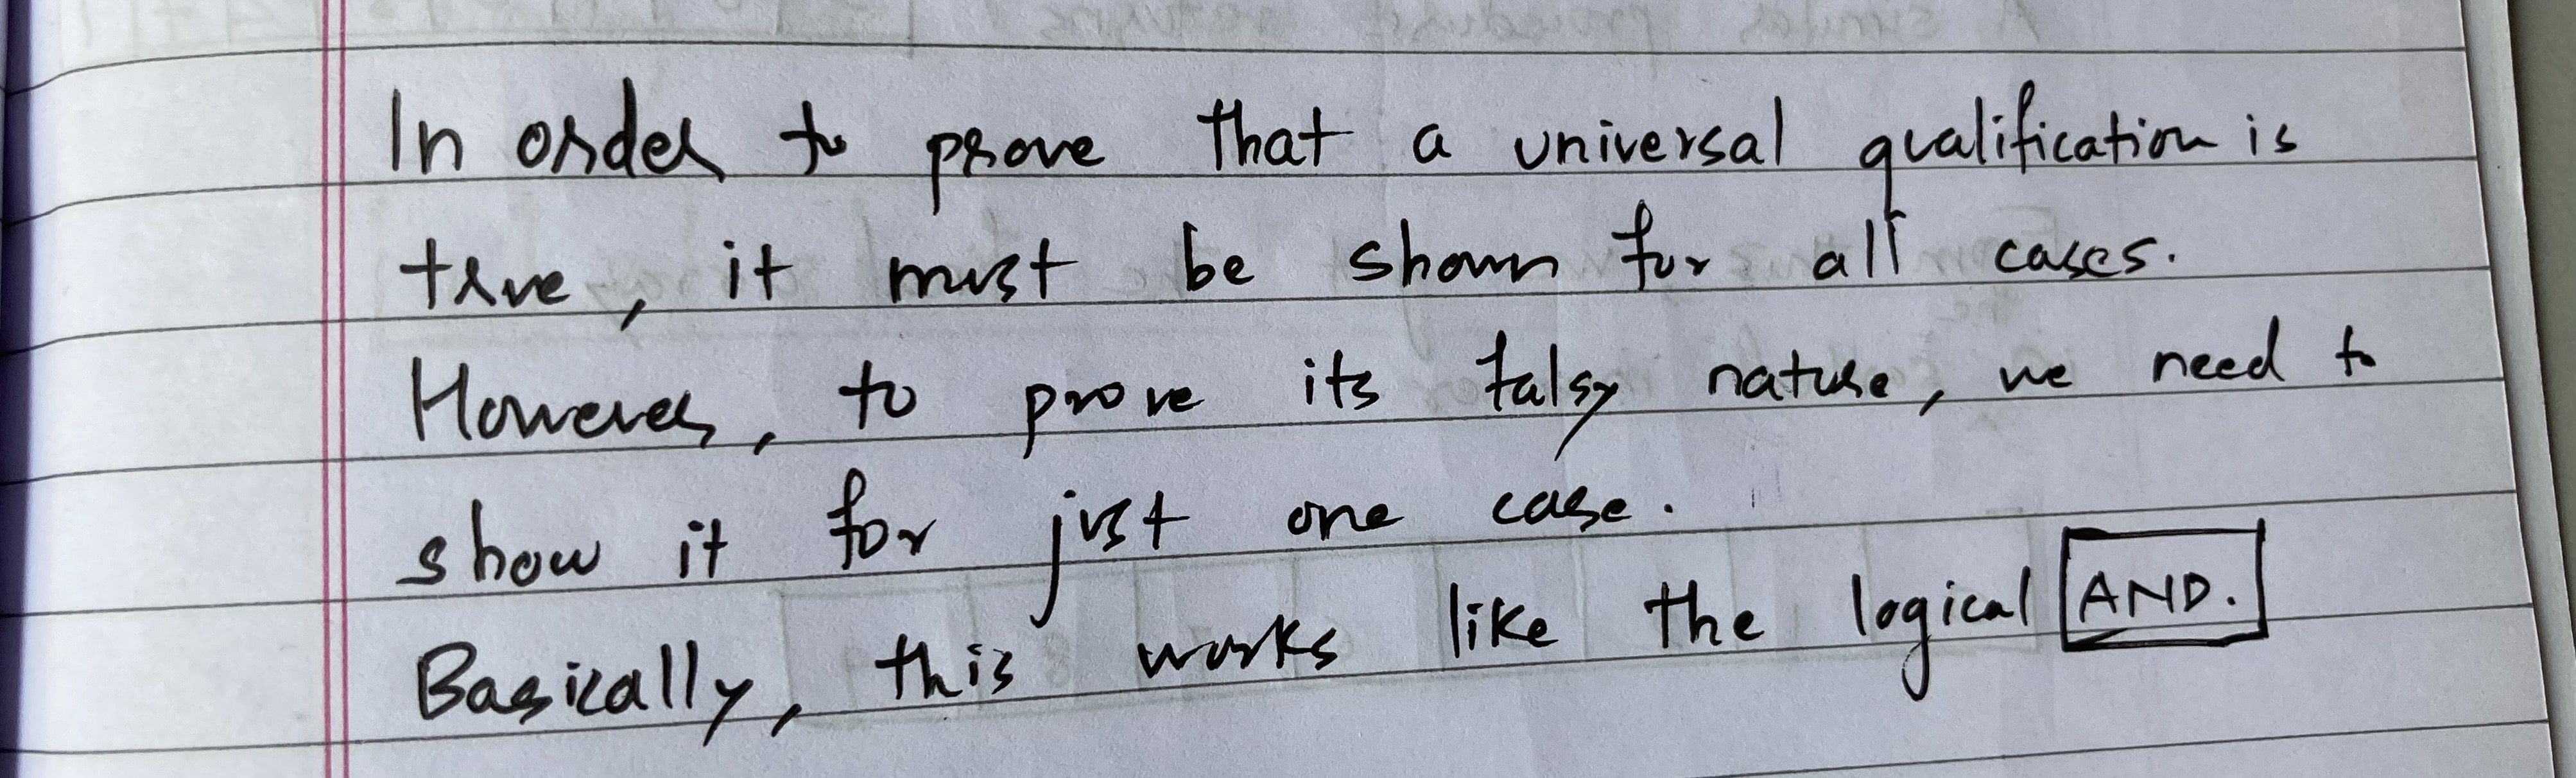 In order to prove that a universal qualification is
true, it must be shown for all cases.
However, to prove its falsy nature, we need to
show it for just one case.
Basically, this works like the logical AND.